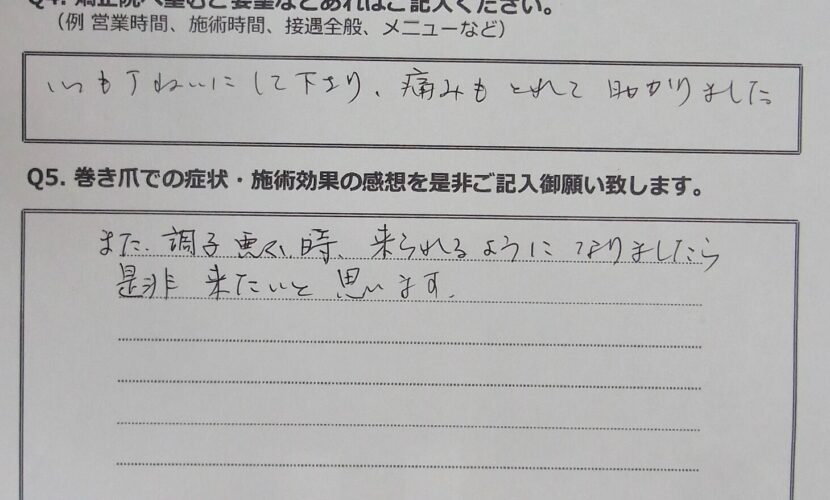 Q4. 矯正院へ望むご要望などあればご記入ください。
(例 営業時間、施術時間、接遇全般、メニューなど)
いつも丁ねいにして下さり、痛みもとれて助かりました
Q5. 巻き爪での症状・施術効果の感想を是非ご記入御願い致します。
また、調子悪い時、来られるようになりましたら
是非 来たいと思います。